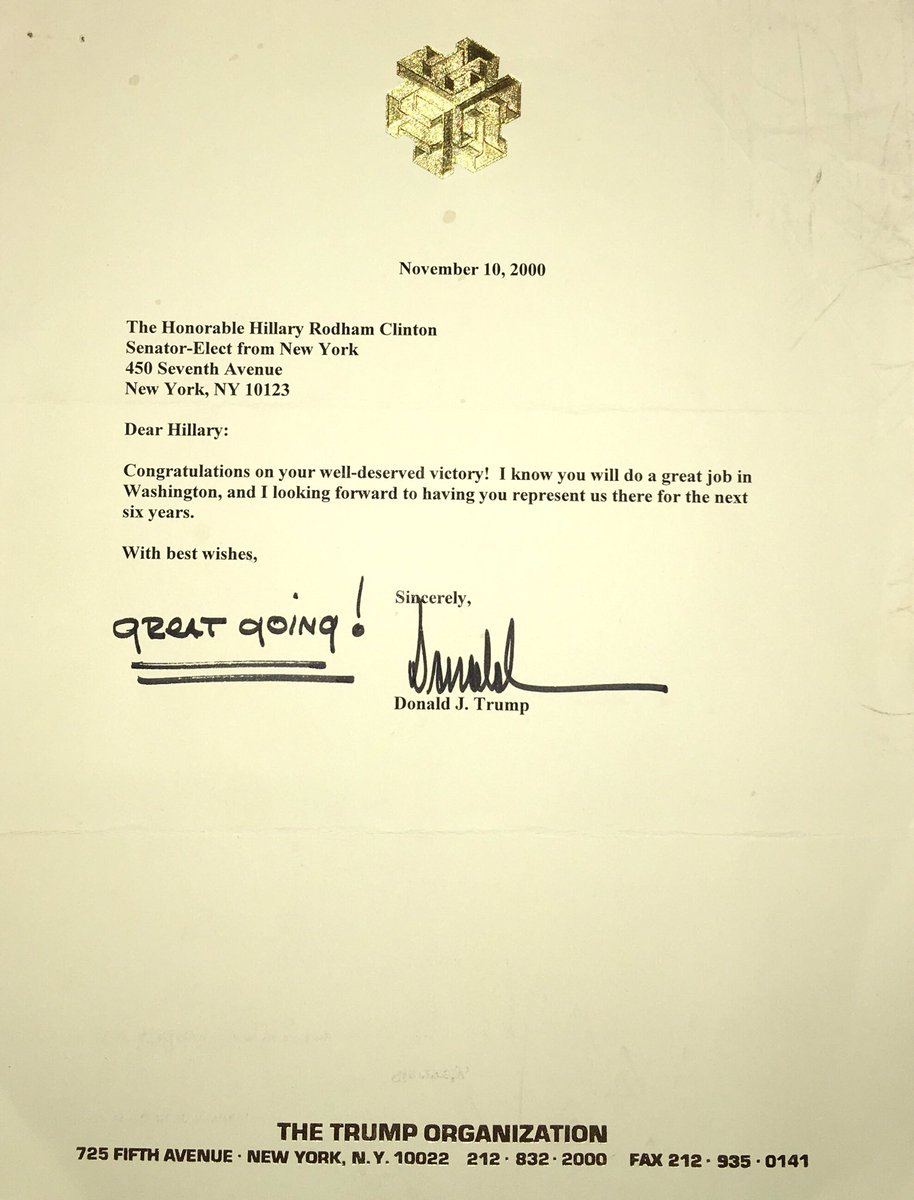 November 10, 2000
The Honorable Hillary Rodham Clinton
Senator-Elect from New York
450 Seventh Avenue
New York, NY 10123
Dear Hillary:
Congratulations on your well-deserved victory!  I know you will do a great job in
Washington, and I looking forward to having you represent us there for the next
six years.
With best wishes,
Sincerely,
GREAT GOING!
Donald
Donald J. Trump
THE TRUMP ORGANIZATION
725 FIFTH AVENUE · NEW YORK, N.Y. 10022 212 · 832 · 2000 FAX 212 · 935 · 0141